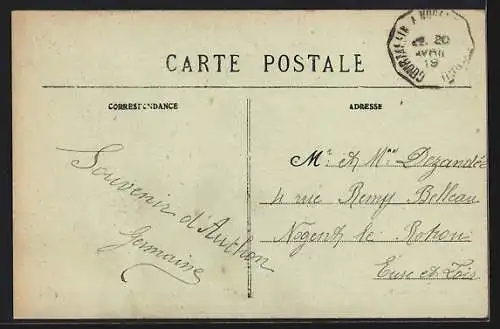 COURTALAIN A
22 20
AVRIL
19
CARTE POSTALE
CORRESPONDANCE
ADRESSE
Souvenir d'Authon
Germaine
Mr et Mme Dezandée
4 rue Remy Belleau
Nogent le Rotrou
Eure et Loir